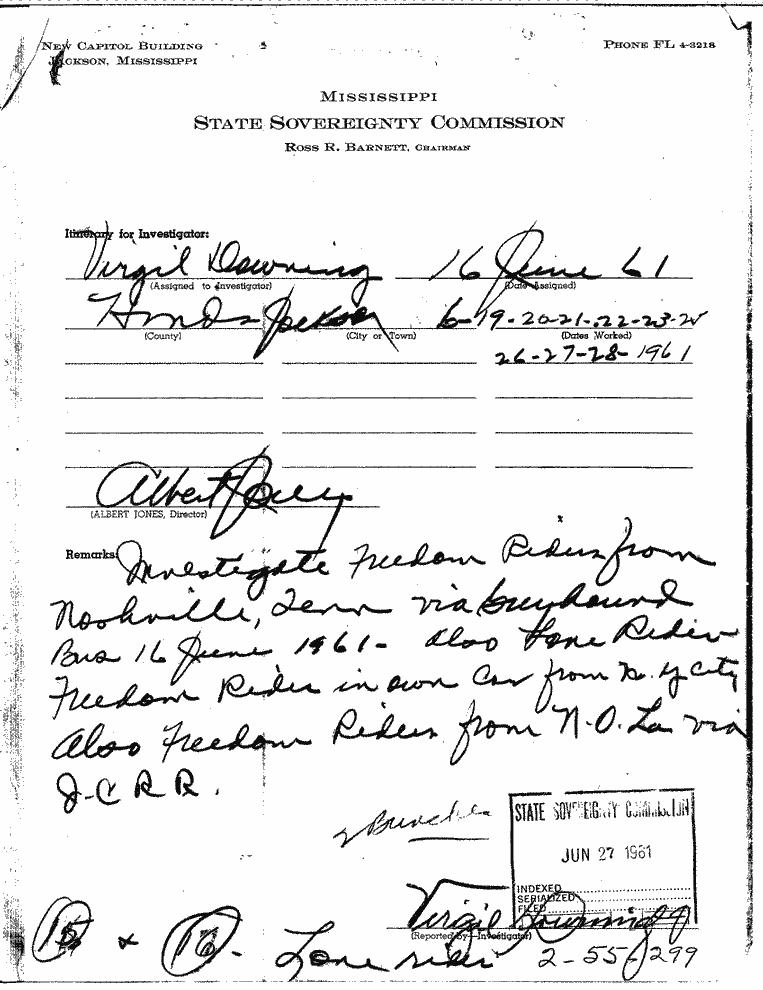 NEW CAPITOL BUILDING
JACKSON, MISSISSIPPI
PHONE FL 4-3218
MISSISSIPPI
STATE SOVEREIGNTY COMMISSION
ROSS R. BARNETT, CHAIRMAN
Itinerary for Investigator:
Virgil Downing 16 June 61
(Assigned to Investigator) (Date Assigned)
Hinds Jackson 6-19-20-21-22-23-25
(County) (City or Town) (Dates Worked)
26-27-28-1961
Albert Jones
(ALBERT JONES, Director)
Remarks: Investigate Freedom Riders from
Nashville, Tenn via Greyhound
Bus 16 June 1961- also Lone Rider
Freedom Rider in own Car from N. Y City
Also Freedom Riders from N.O. La via
I-C R R.
2 Bunche
STATE SOVEREIGNTY COMMISSION
JUN 27 1961
INDEXED
SERIALIZED
FILED
Virgil Downing
(Reported by—Investigator)
15 & 16 - Lone rider 2-55-299